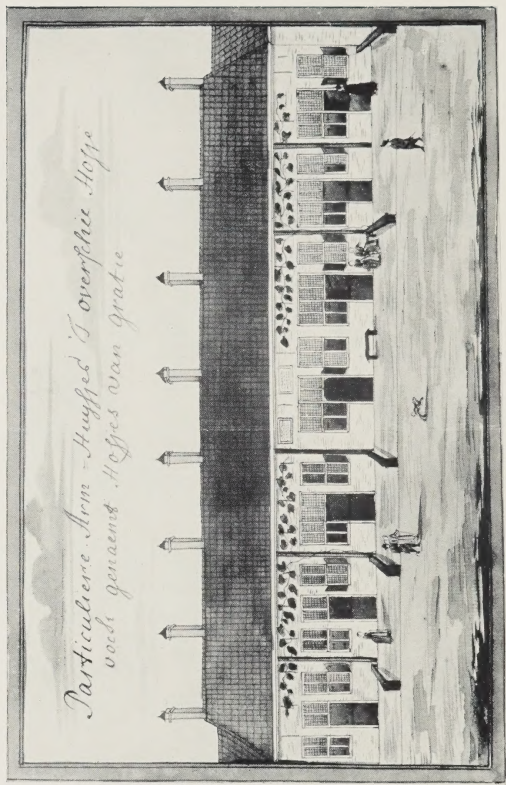 Particuliere Arm-Huysjes 'T overschie Hofje
voch genaemt Hofjes van gratie